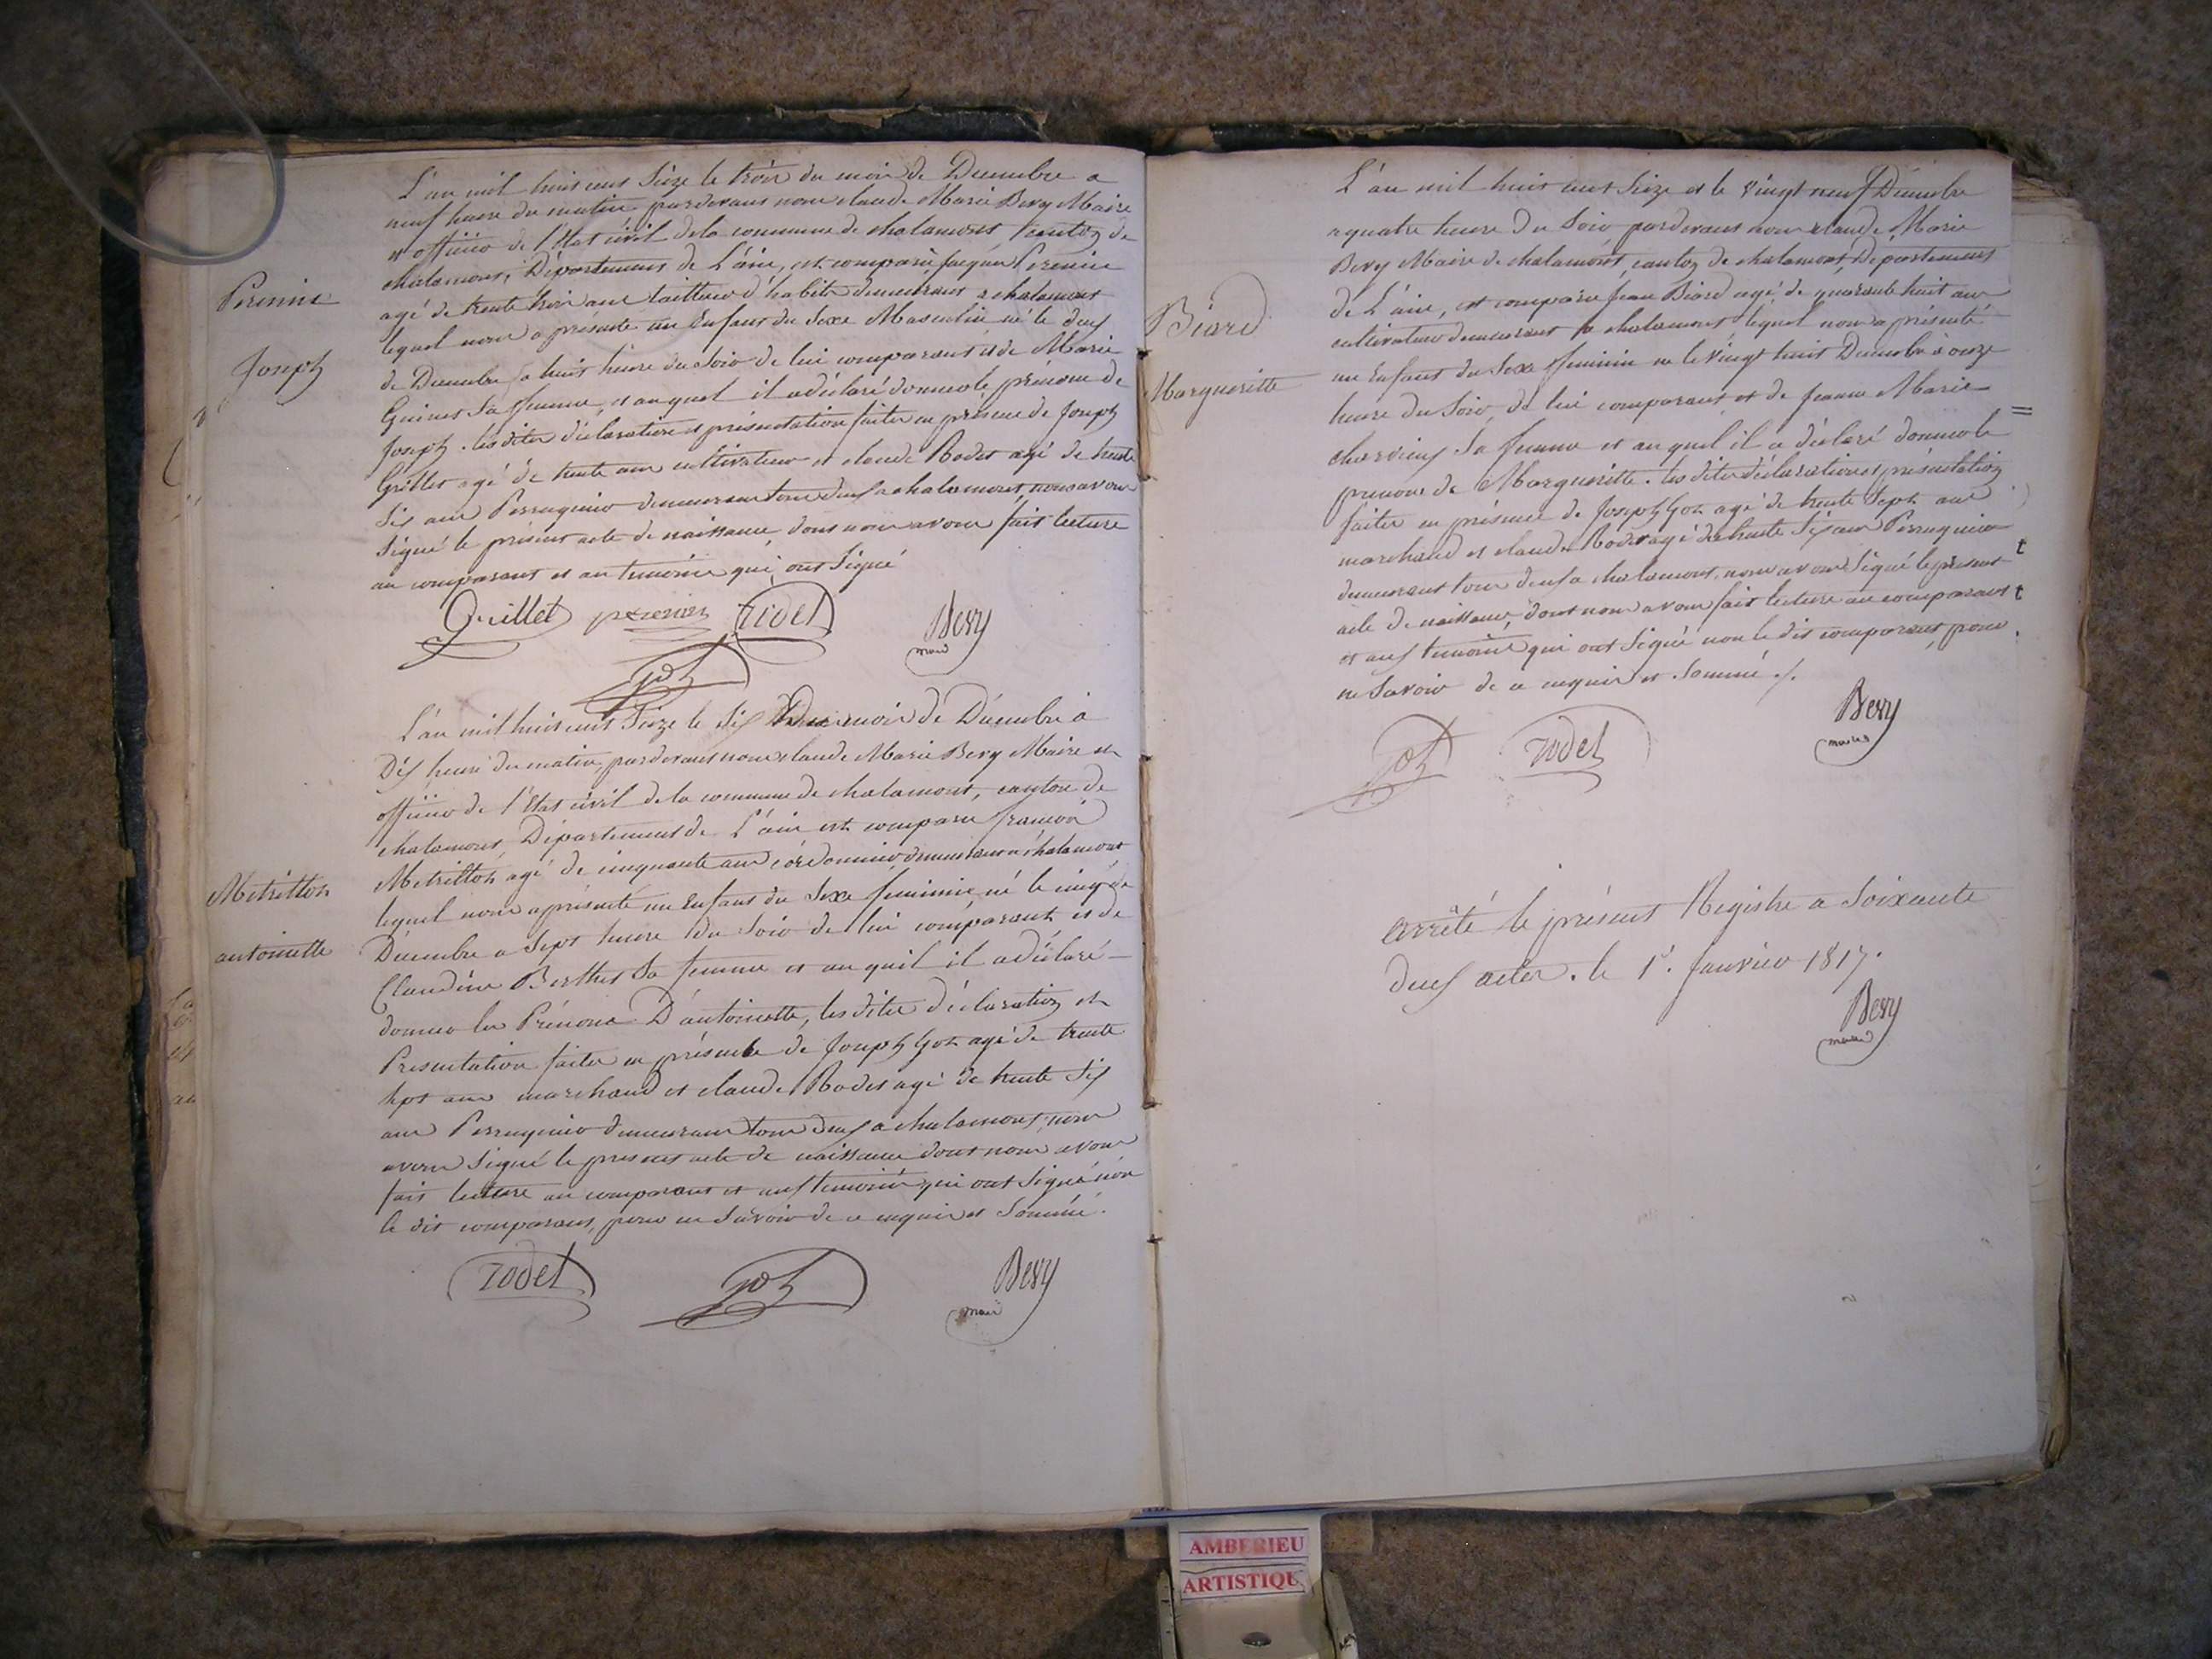 L'an mil huit cent Seize le trois du mois de Decembre a
neuf heure du matin pardevant nous claude Marie Bevy Maire
et officier de l'Etat civil de la commune de chalamont, canton de
chalamont, Département de L'ain, est comparu jacques Perenin
Perenin
agé de trente trois ans tailleur d'habits demeurant a chalamont
lequel nous a présenté un Enfant du Sexe Masculin né le deux
Joseph
de Decembre a huit heure du Soir de lui comparant et de Marie
Sa femme, et auquel il a déclaré donner le prénom de
Joseph. les dites déclaration et présentation faites en présence de Joseph
Grillet agé de trente ans cultivateur et claude Rodet agé de trente
Six ans Perruquier demeurant tous deux a chalamont, nous avons
Signé le présent acte de naissance, dont nous avons fait lecture
au comparant et au temoins qui ont Signé
Grillet perenin rodet Bevy
maire
got
L'an mil huit cent Seize le Six Du mois de Décembre à
Dix heure du matin, pardevant nous claude Marie Bevy Maire et
officier de l'Etat civil de la commune de chalamont, canton de
chalamont, Département de L'ain est comparu francois
Metritton
Metritton agé de cinquante ans cordonnier demeurant a chalamont
lequel nous a présenté un Enfant du Sexe feminin, né le cinq de
antoinette
Decembre a Sept heure du Soir de lui comparant et de
Claudine Berthet Sa femme et au quel il a déclaré
donner les Prénoms D'antoinette, les dites déclaration et
Presentation faites en présence de Joseph Got agé de trente
Sept ans marchand et claude Rodet agé de trente Six
ans Perruquier demeurant tous deux a chalamont, nous
avons Signé le present acte de naissance dont nous avons
fait lecture au comparant et aux temoins qui ont Signé non
le dit comparant, pour ne Savoir de ce enquis et Sommé.
rodet got Bevy
maire
L'an mil huit cent Seize et le vingt neuf Décembre
a quatre heure Du Soir pardevant nous claude Marie
Bevy Maire de chalamont, canton de chalamont, Département
Biard
de L'ain, est comparu jean Biard agé de quarante huit ans
cultivateur demeurant a chalamont lequel nous a présenté
Margueritte
un Enfant du Sexe feminin né le vingt huit Decembre à onze
heure du Soir, de lui comparant et de jeanne Marie
Sa femme et au quel il a déclaré donner le
prenom de Margueritte. les dites déclaration et présentation
faites en présence de Joseph Got agé de trente Sept ans
marchand et claude Rodet agé de trente Six ans Perruquier
demeurant tous deux a chalamont, nous avons Signé le présent
acte de naissance, dont nous avons fait lecture au comparant
et aux temoins qui ont Signé non le dit comparant, pour
ne Savoir de ce enquis et Sommé ./.
got rodet Bevy
maire
arrêté le présent Registre a Soixante
deux actes. le 1er. Janvier 1817.
Bevy
maire
AMBERIEU
ARTISTIQU